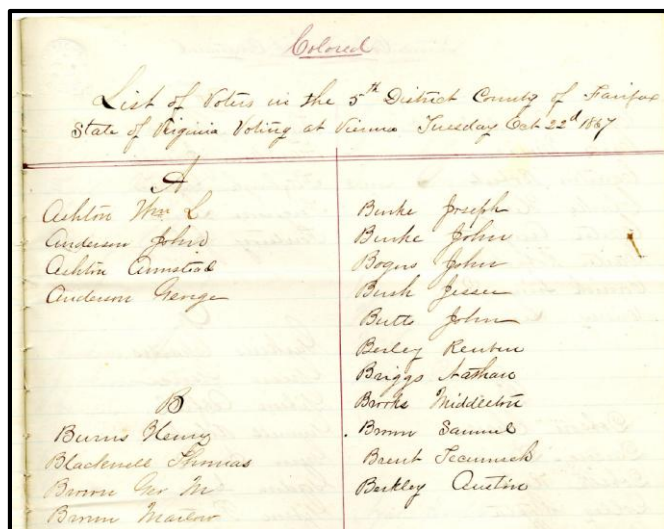 Colored
List of Voters in the 5th District County of Fairfax
State of Virginia Voting at Vienna Tuesday Oct 22d 1867
A
Ashton Wm L
Anderson John
Ashton Armstead
Anderson George
B
Burns Henry
Blackwell Thomas
Brown Geo M
Brown Marlow
Burke Joseph
Burke John
Bogus John
Bush Jesse
Butts John
Berley Reuben
Briggs Nathan
Brooks Middleton
Brown Samuel
Brent Tecumseh
Berkley Austin